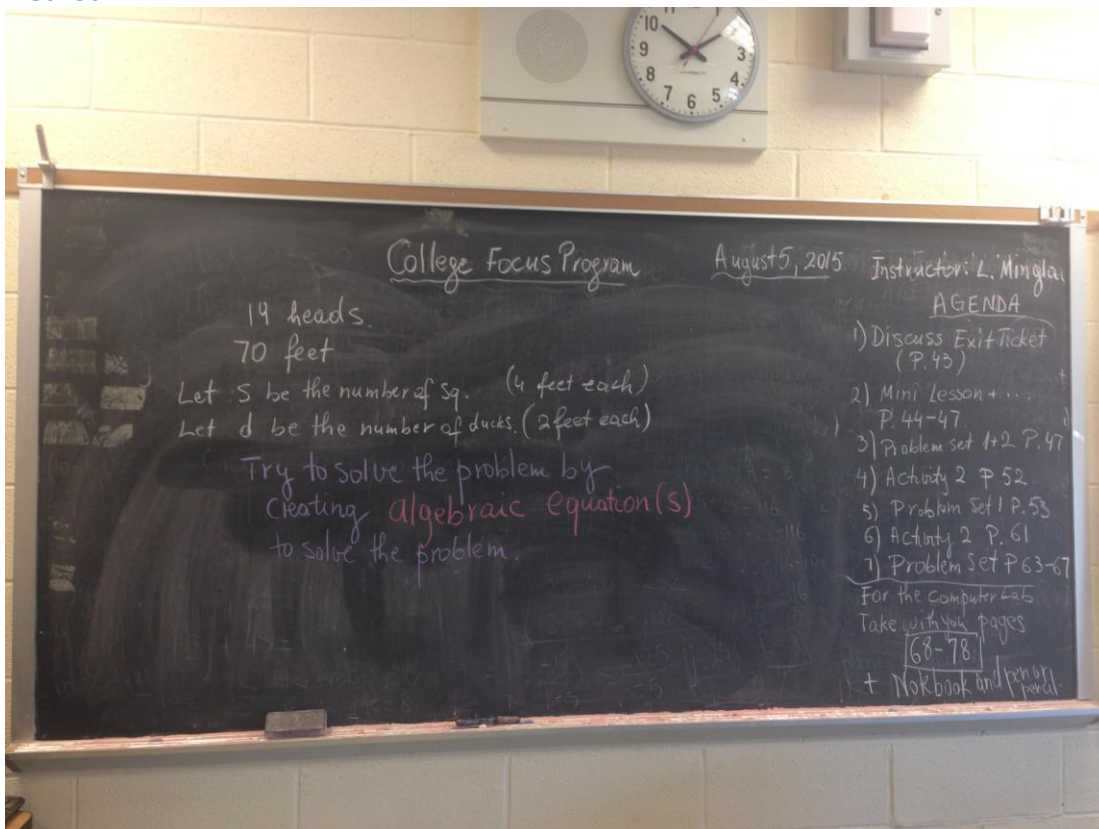 10
9
8
7
6
5
4
3
College Focus Program
August 5, 2015
Instructor: L. Minglar
19 heads.
70 feet
Let S be the number of sq. (4 feet each)
Let d be the number of ducks. (2 feet each)
Try to solve the problem by
creating algebraic equation(s)
to solve the problem.
AGENDA
1) Discuss Exit Ticket
(P.43)
2) Mini Lesson + ....
P. 44-47
3) Problem set 1+2 P.47
4) Activity 2 P 52.
5) Problem Set 1 P.53
6) Activity 2 P. 61
7) Problem Set P 63-67
For the computer Lab
Take with you pages
68-78
+ Notebook and pen or
pencil.